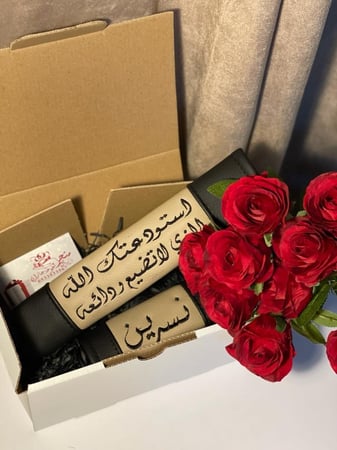 استودعتك الله
الذي لا تضيع ودائعه
نسرين